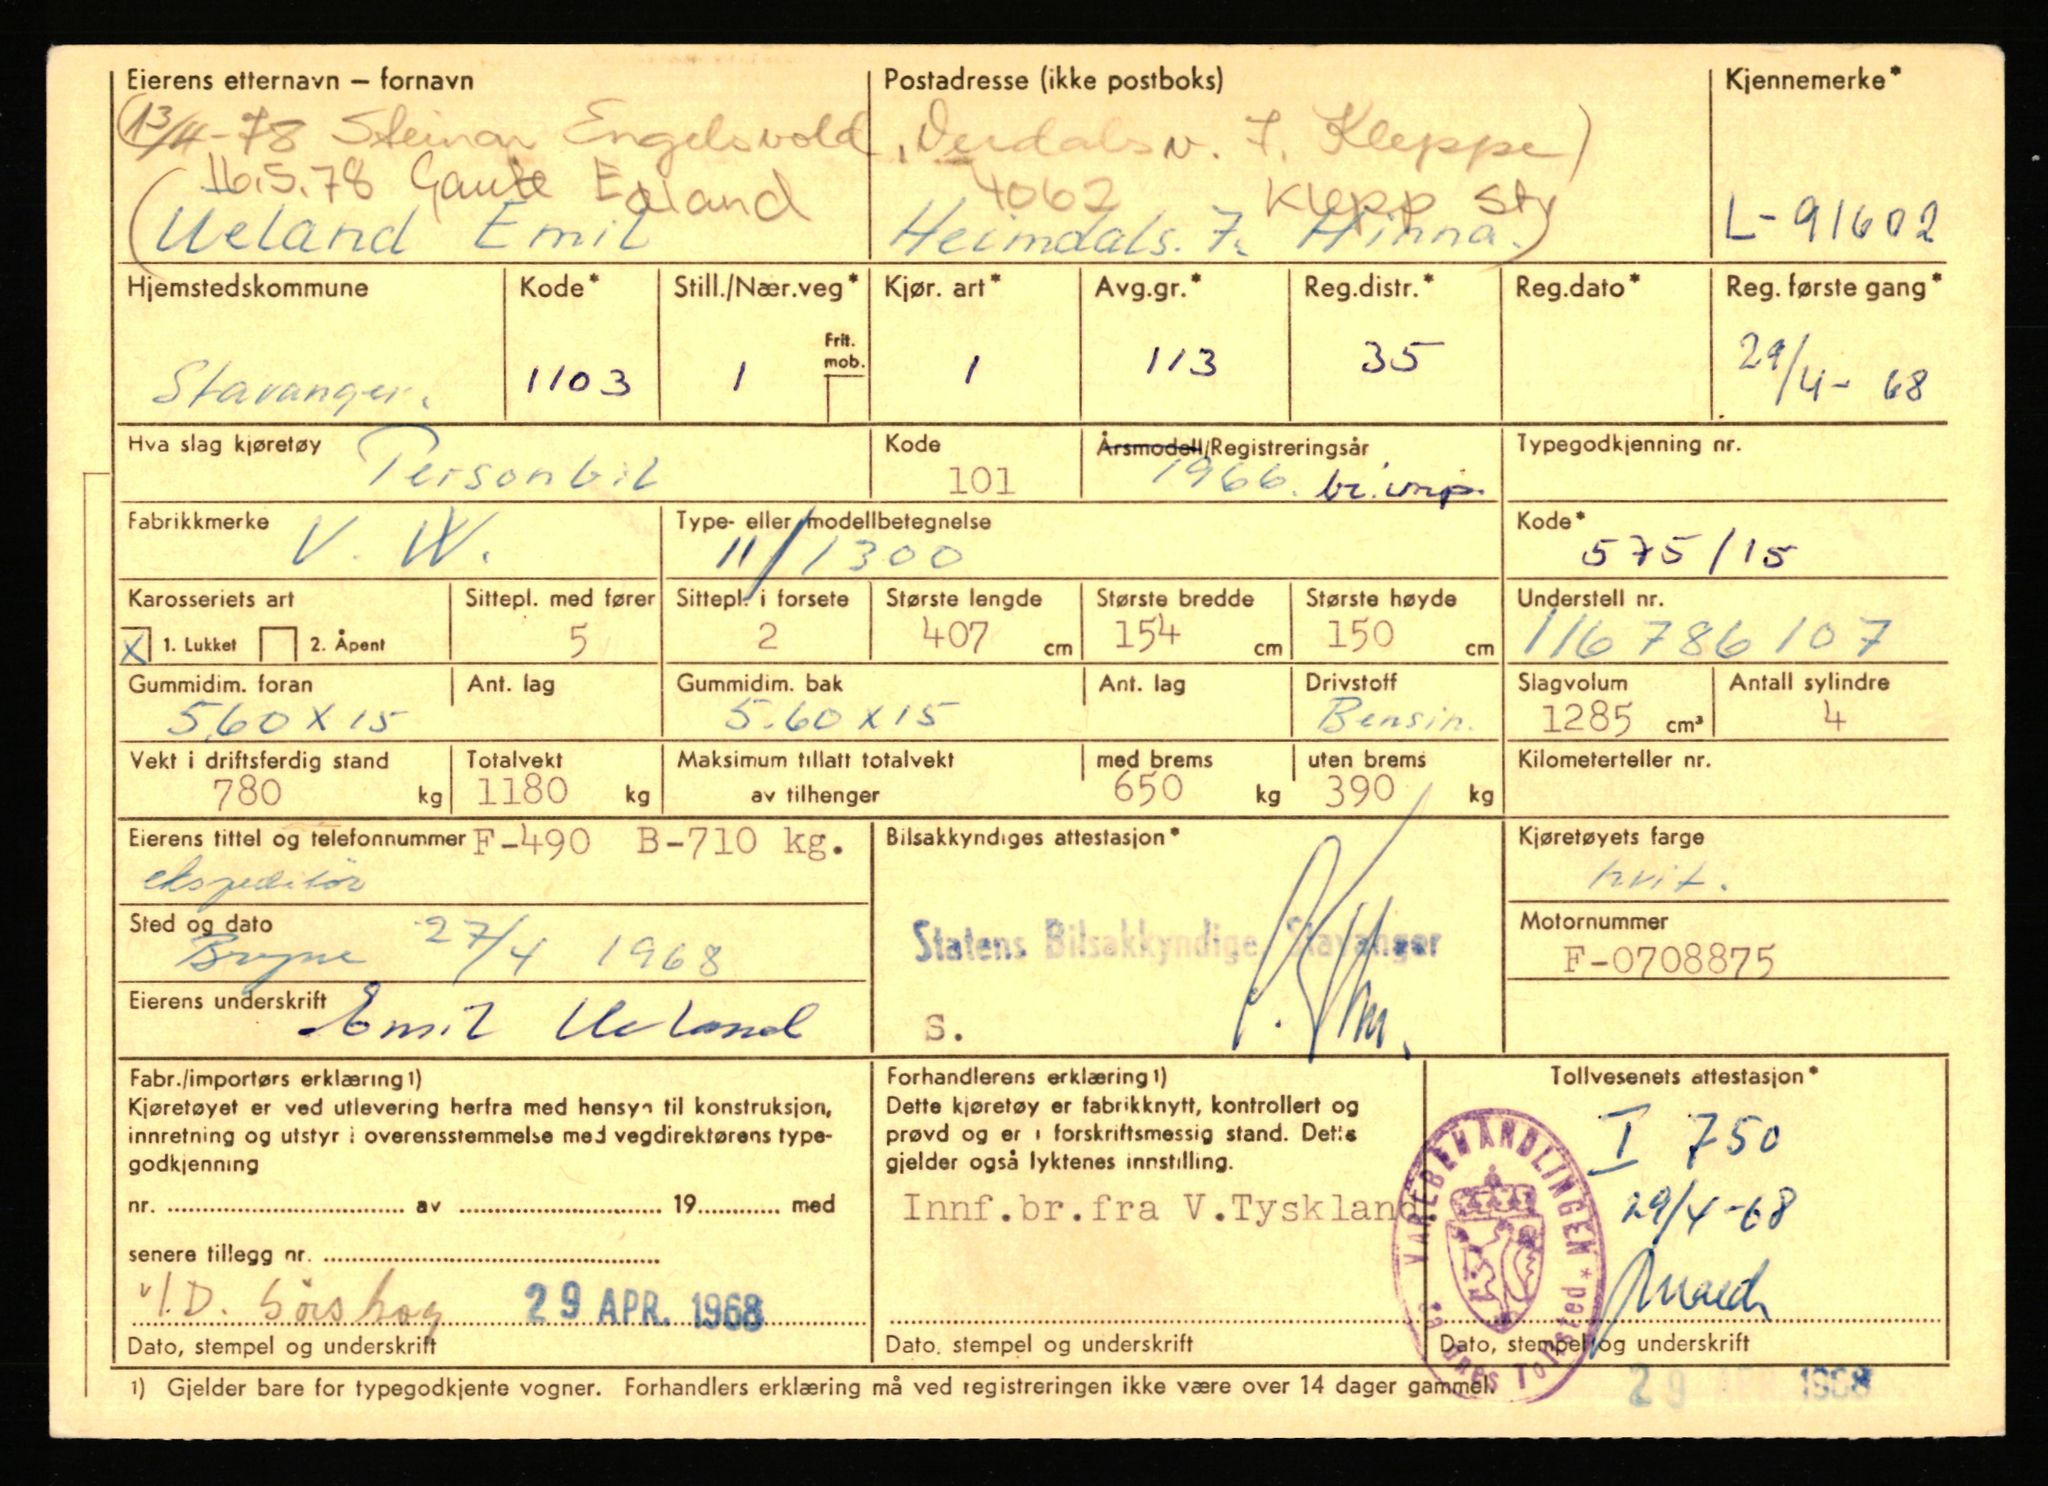 Eierens etternavn – fornavn
Postadresse (ikke postboks)
Kjennemerke*
(13/4-78 Steinar Engelsvold, v. 7, Kleppe)
16.5.78 Gaute 4062 Klepp St)
(Ueland Emil Heimdals. 7. Hinna.)
L-91602
Hjemstedskommune Kode* Still./Nær.veg* Kjør. art* Avg.gr.* Reg.distr.* Reg.dato* Reg. første gang*
Frit. mob.
Stavanger. 1103 1 1 113 35 29/4-68
Hva slag kjøretøy Personbil Kode 101 Årsmodell/Registreringsår 1966. br.imp. Typegodkjenning nr.
Fabrikkmerke V. W. Type- eller modellbetegnelse 11/1300 Kode* 575/15
Karosseriets art Sittepl. med fører Sittepl. i forsete Største lengde Største bredde Største høyde Understell nr.
X 1. Lukket 2. Åpent 5 2 407 cm 154 cm 150 cm 116786107
Gummidim. foran Ant. lag Gummidim. bak Ant. lag Drivstoff Slagvolum Antall sylindre
5,60 x 15 5.60 x 15 Bensin. 1285 cm³ 4
Vekt i driftsferdig stand Totalvekt Maksimum tillatt totalvekt med brems uten brems Kilometerteller nr.
780 kg 1180 kg av tilhenger 650 kg 390 kg
Eierens tittel og telefonnummer F-490 B-710 kg. Bilsakkyndiges attestasjon* Kjøretøyets farge
ekspeditør hvit.
Sted og dato Bryne 27/4 1968 Statens Bilsakkyndige, Stavanger Motornummer
F-0708875
Eierens underskrift Emil Ueland S.
Fabr./importørs erklæring1)
Kjøretøyet er ved utlevering herfra med hensyn til konstruksjon,
innretning og utstyr i overensstemmelse med vegdirektørens type-
godkjenning
nr. av 19 med
senere tillegg nr.
29 APR. 1968
Dato, stempel og underskrift
Forhandlerens erklæring1)
Dette kjøretøy er fabrikknytt, kontrollert og
prøvd og er i forskriftsmessig stand. Dette
gjelder også lyktenes innstilling.
Innf.br.fra V.Tyskland.
Dato, stempel og underskrift
Tollvesenets attestasjon*
I 750
29/4-68
VAREBEHANDLINGEN * Tollsted *
Dato, stempel og underskrift
1) Gjelder bare for typegodkjente vogner. Forhandlers erklæring må ved registreringen ikke være over 14 dager gammel.
29 APR. 1968